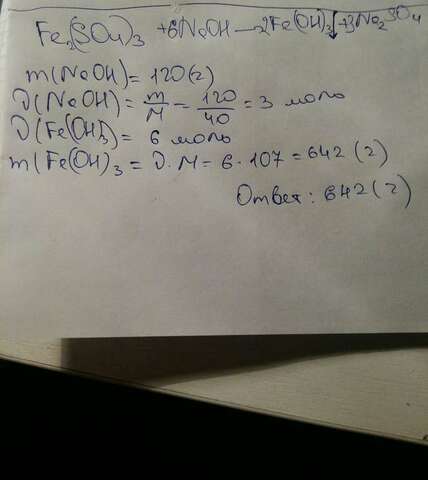 Fe₂(SO₄)₃ + 6NaOH — 2Fe(OH)₃↓ + 3Na₂SO₄
m(NaOH) = 120(г)
ν(NaOH) = m/M = 120/40 = 3 моль
ν(Fe(OH)₃) = 6 моль
m(Fe(OH)₃ = ν · M = 6 · 107 = 642 (г)
Ответ: 642 (г)